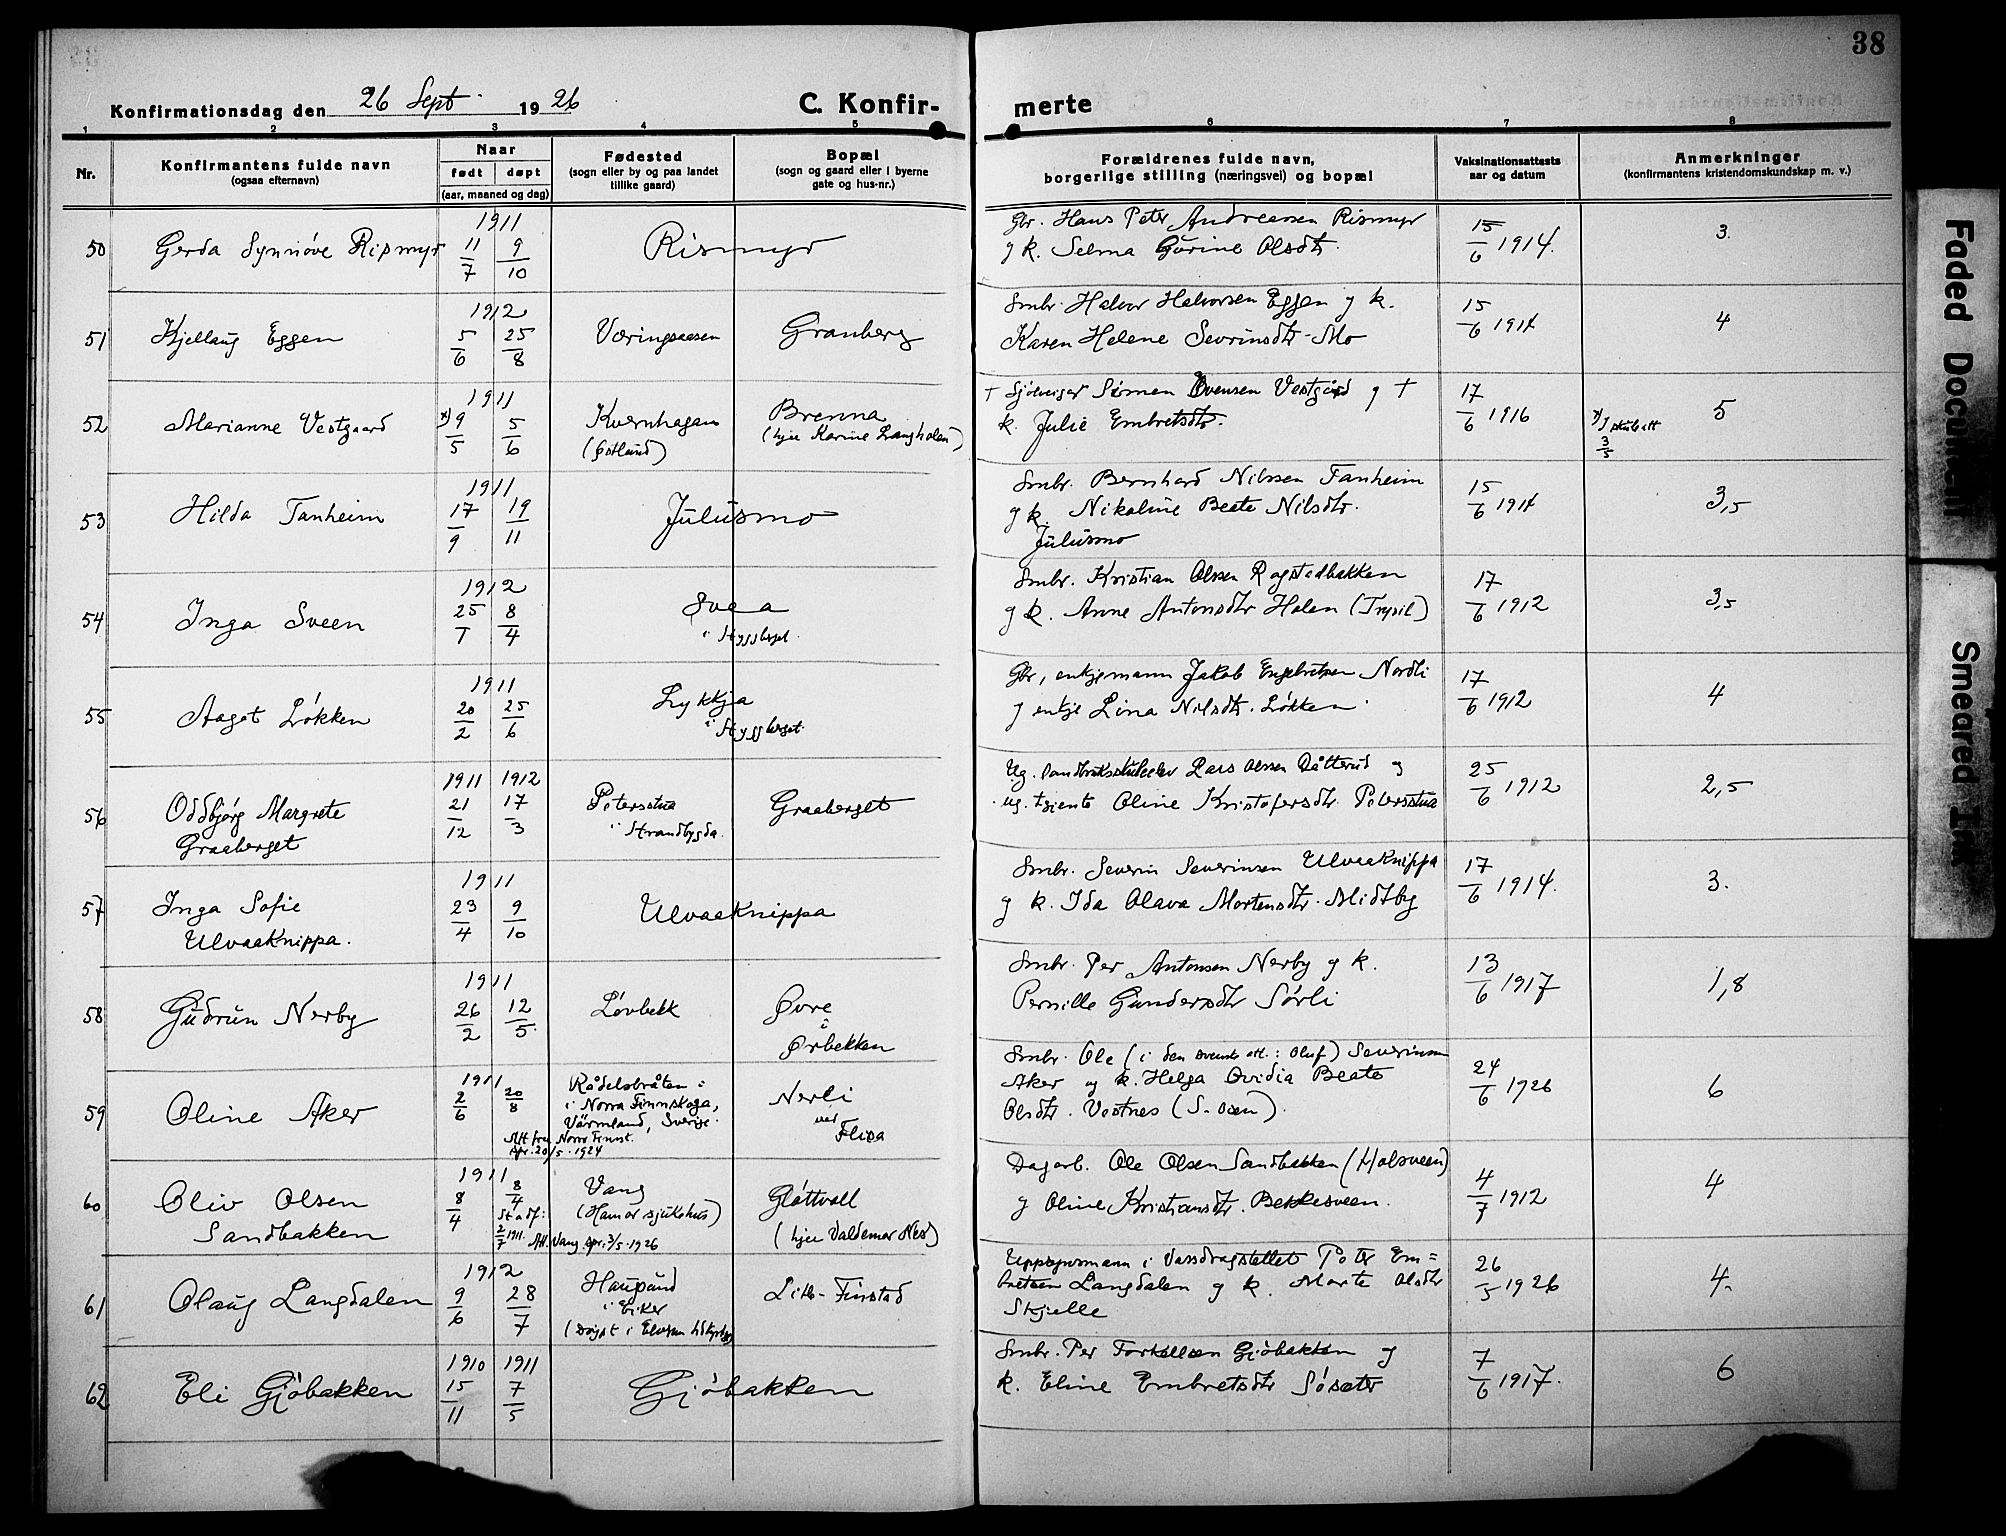 38
Konfirmationsdag den 26 Sept. 1926
C. Konfir-
merte
1 2 3 4 5 6 7 8
Nr.
Konfirmantens fulde navn
(ogsaa efternavn)
Naar
født døpt
(aar, maaned og dag)
Fødested
(sogn eller by og paa landet
tillike gaard)
Bopæl
(sogn og gaard eller i byerne
gate og hus-nr.)
Forældrenes fulde navn,
borgerlige stilling (næringsvei) og bopæl
Vaksinationsattests
aar og datum
Anmerkninger
(konfirmantens kristendomskundskap m. v.)
50 Gerda Synnöve Rismyr
1911
11/7 9/10
Rismyr
Gbr. Hans Peter Andreassen Rismyr
g k. Selma Gurine Olsdtr.
15/6 1914.
3.
51 Kjellaug Eggen
1912
5/6 25/8
Væringsaasen
Granberg
Smbr. Halvor Halvorsen Eggen g k.
Karen Helene Sevrinsdtr. Mo
15/6 1914
4
52 Marianne Vestgaard
1911
x) 9/5 5/6
Kvernhagan
(Östlund)
Brenna
(hjee Karine Langholen)
† Sjöleiger Sörnen Svensen Vestgård g †
k. Julie Embretsdtr.
17/6 1916
5
x) I skuleatt
3/5
53 Hilda Tanheim
1911
17/9 19/11
Julusmo
Smbr. Bernhard Nilssen Tanheim
g k. Nikoline Beate Nilsdtr.
Julusmo
15/6 1914
3,5
54 Inga Sveen
1912
25/1 8/4
Svea
i Hyggberget.
Smbr. Kristian Olssen Rogstadbakken
g k. Anne Antonsdtr Holen (Trysil)
17/6 1912
3,5
55 Aagot Lökken
1911
20/2 25/6
Lykkja
i Hyggberget.
Gbr, enkjemann Jakob Engebretsen Nordli
g enkje Lina Nilsdtr. Lökken.
17/6 1912
4
56 Oddbjørg Margrete
Graaberget
1911 1912
21/12 17/3
Petersstua
i Strandbygda.
Graaberget
Ug. landbruksskuleelev Lars Olssen Dåtterud g
ug. tjiente Oline Kristofersdtr. Petersstua
25/6 1912
2,5
57 Inga Sofie
Ulvaaknippa.
1911
23/4 9/10
Ulvaaknippa
Smbr. Severin Severinsen Ulvaaknippa
g k. Ida Olava Mortensdtr. Midtby
17/6 1914.
3.
58 Gudrun Nerby
1911
26/2 12/5.
Lövbekk
Øvre
i
Ørbekken
Smbr. Per Antonsen Nerby g k.
Pernille Gundersdtr Sörli
13/6 1917
1,8
59 Oline Aker
1911
2/6 20/8
Rådelsbråten:
i Norra Finnskoga,
Värmland, Sverige.
Att. fra Norra Finnsk.
spr. 20/5. 1924
Nerli
ved
Flisa
Smbr. Ole (i den svenske att.: Oluf) Severinsen
Aker og k. Helga Ovidia Beate
Olsdtr. Vestnes (S. Osen).
24/6 1926
6
60 Oliv Olsen
Sandbakken
1911
8/4 8/4
Stadf:
2/7 1911. Att. Vang spr. 3/5. 1926
Vang
(Hamar sjukehus)
Gløttvoll
(hjee Valdemar Nes)
Dagarb. Ole Olsen Sandbakken (Holsveen)
g Oline Kristiansdtr. Bekkesveen.
4/7 1912
4
61 Olaug Langdalen
1912
9/6 28/7
Haugsund
i Eiker
(Döypt i Elverum
Litle-Finstad
Uppsynsmann i Vassdragstellet Peter Em=
bretsen Langdalen g k. Marte Olsdtr
Skjelle
26/5 1926
4.
62 Eli Gjöbakken
1910 1911
15/11 7/5
Gjöbakken
Smbr. Per Torkellsen Gjöbakken g
k. Eline Embretsdtr Sösæter
7/6 1917.
6
Faded Document
Smeared Ink